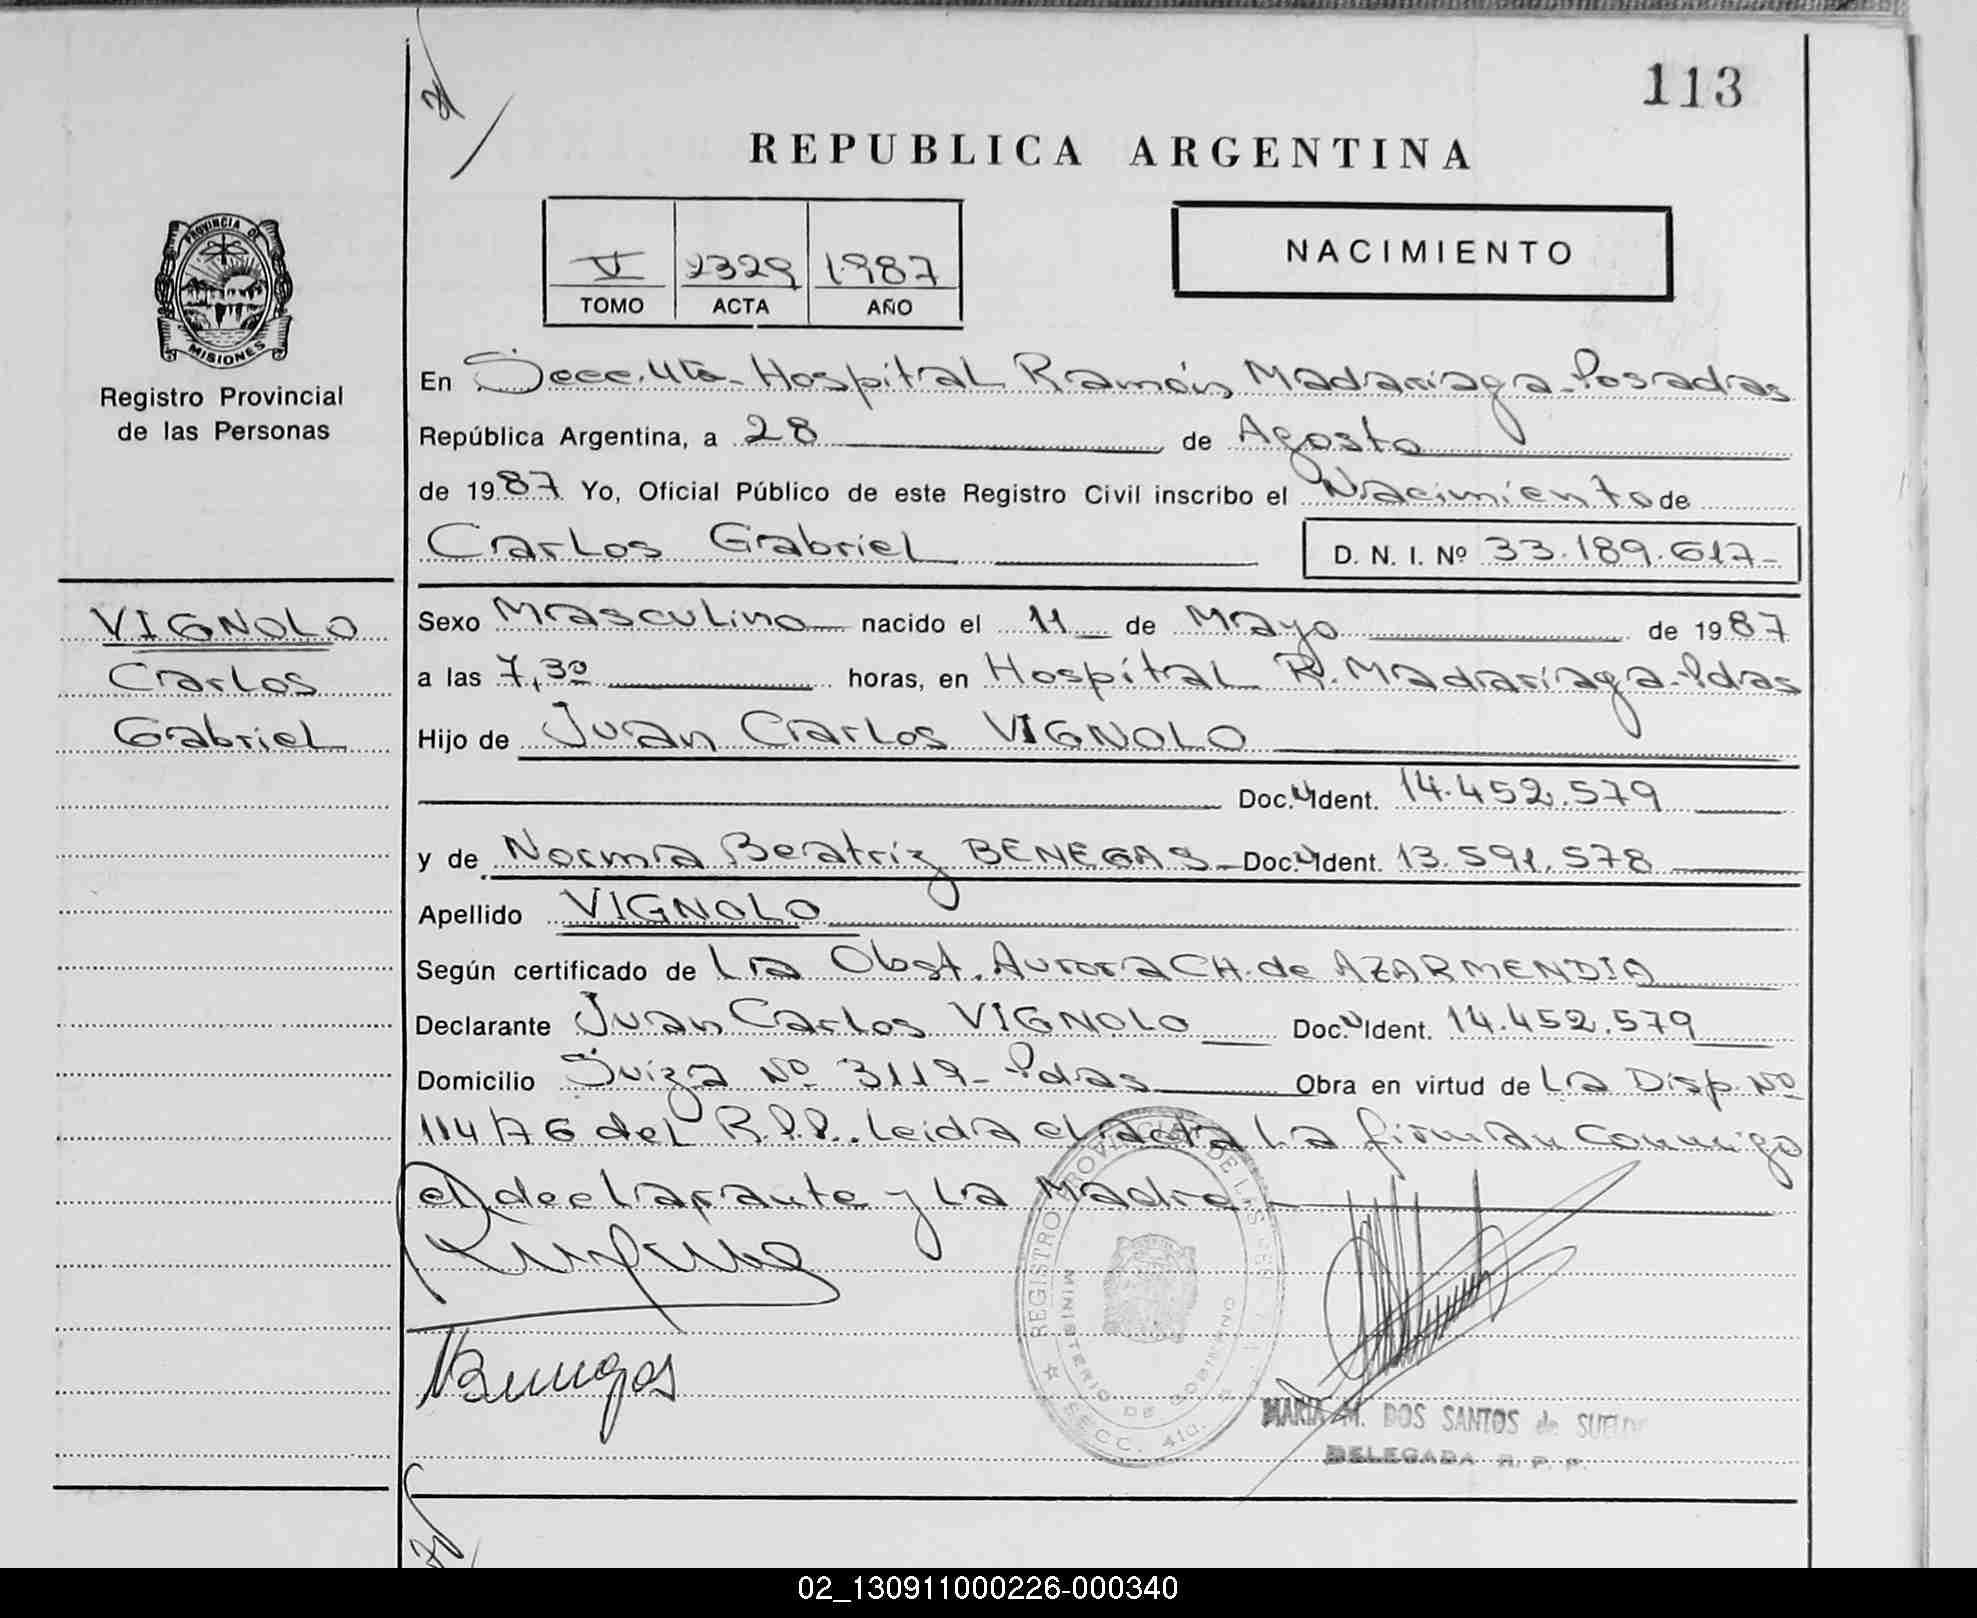 113
REPUBLICA ARGENTINA
V 2329 1987
TOMO ACTA AÑO
NACIMIENTO
PROVINCIA DE
MISIONES
Registro Provincial
de las Personas
En Secc. 4ta. Hospital Ramón Madariaga - Posadas
República Argentina, a 28 de Agosto
de 1987 Yo, Oficial Público de este Registro Civil inscribo el Nacimiento de
Carlos Gabriel D. N. I. Nº 33.189.617-
VIGNOLO
Carlos
Gabriel
Sexo Masculino nacido el 11 de Mayo de 1987
a las 7,30 horas, en Hospital R. Madariaga - Pdas
Hijo de Juan Carlos VIGNOLO
Doc. Ident. 14.452.579
y de Norma Beatriz BENEGAS - Doc. Ident. 13.591.578
Apellido VIGNOLO
Según certificado de La Obst. Aurora CH. de AZARMENDIA
Declarante Juan Carlos VIGNOLO Doc. Ident. 14.452.579
Domicilio Suiza Nº 3119 - Pdas Obra en virtud de La Disp. Nº
114/76 del R.P.P.. Leida el acta La firman conmigo
el declarante y La Madre
REGISTRO PROVINCIAL DE LAS
MINISTERIO DE GOBIERNO
SECC. 4ta.
NBenegas
MARIA M. DOS SANTOS de
DELEGADA R. P. P.
02_130911000226-000340